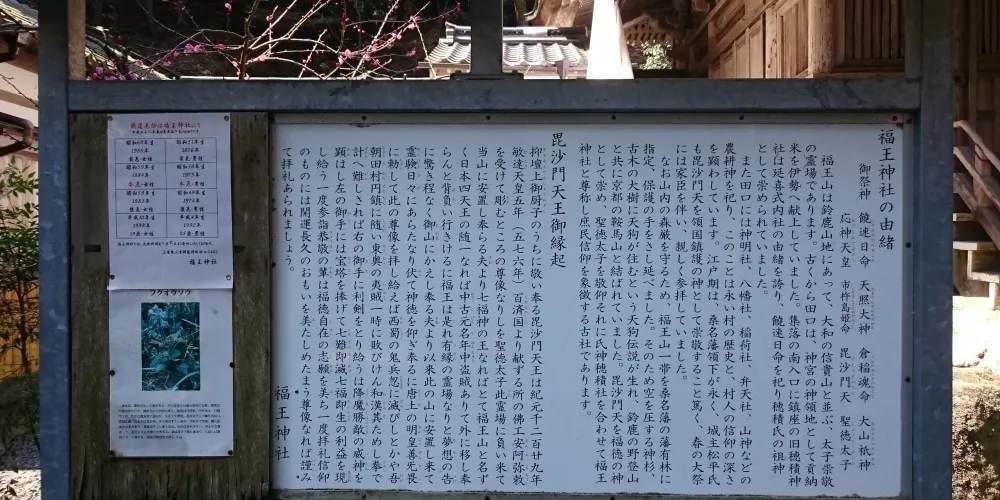 福王神社の由緒
御祭神 饒速日命 天照大神 倉稲魂命 大山祇神
応神天皇 市杵島姫命 毘沙門天 聖徳太子
福王山は鈴鹿山地にあって、大和の信貴山と並ぶ、太子崇敬
の霊場であります。古くから田口は、神宮の神領地として貢納
米を伊勢へ献上していました。集落の南入口に鎮座の旧穂積神
社は延喜式内社の由緒を誇り、饒速日命を祀り穂積氏の祖神
として崇められていました。
また田口には神明社、八幡社、稲荷社、弁天社、山神などの
農耕神を祀り、このことは永い村の歴史と、村人の信仰の深さ
を顕わしています。江戸期は、桑名藩領下が永く、城主松平氏
も毘沙門天を国鎮護の神として崇敬すること篤く、春の大祭
には家臣を伴い、親しく参拝していました。
なお山内の森厳を守るため、福王山一帯を桑名藩の藩有林に
指定、保護の手をさし延べました。そのため空を圧する神杉、
古木の大樹に天狗が住むという天狗伝説が生れ、鈴鹿の野登山
と共に京都の鞍馬山と結ばれていました。毘沙門天を福徳の神
として崇め、聖徳太子を敬仰それに氏神穂積社を合わせて福王
神社と尊称し庶民信仰を象徴する古社であります。
毘沙門天王御縁起
抑壇上御厨子のうちに敬い奉る毘沙門天王は紀元千二百廿九年
敏達天皇五年(五七六年)百済国より献ずる所の佛工安阿弥勅
を受けて彫むところの尊像なりし聖徳太子此霊場に負い来て
当山に安置し奉る夫より七福神の王なればとて福王山と名ず
く日本四天王の随一なれば中古元名年中盗賊ありて外に移し奉
らんと背負い行きけるに福王は是れ有縁の霊場なりと夢想の告
に驚き程なく御山にかえし奉る夫より以来此の山に安置し来て
霊験日々にあらたなり伏て神徳を仰ぎ奉るに唐土の明皇善无畏
に勅して此の尊像を拝し給えば西蜀の鬼兵忽に滅びしとかや吾
朝田村円鎮に随い東奥の夷賊一時に敗びけん和漢其ためし奉て
計べ難しされば右の御手に利剣をとり給うは降魔勝敵の威神を
顕はし左の御手には宝塔を捧げて七難即滅七福即生の利益を現
し給う一度参詣恭敬の輩は福徳自在の志願を美ちー度拝礼信仰
のものには開運長久のおもいを美たしめたまう尊像なれば謹み
て拝礼あられましょう。
福王神社
開運厄除は福王神社にて
昭和60年生
昭和51年生
前厄・女性
前厄・男性
本厄・女性
本厄・男性
後厄・女性
後厄・男性
福王神社
フクオウソウ